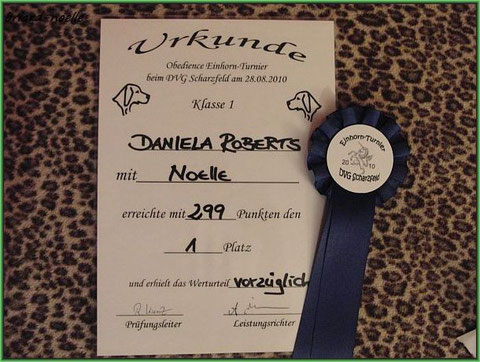 Urkunde
Obedience Einhorn-Turnier
beim DVG Scharzfeld am 28.08.2010
Klasse 1
DANIELA ROBERTS
mit NOELLE
erreichte mit 299 Punkten den
1 Platz
und erhielt das Werturteil vorzüglich
Prüfungsleiter Leistungsrichter
Einhorn-Turnier
2010
DVG Scharzfeld